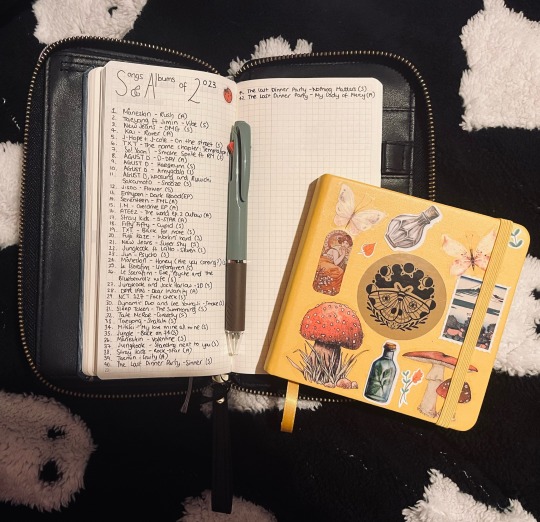 Songs & Albums of 2023
1. Måneskin - Rush! (A)
2. Taeyang ft Jimin - Vibe (S)
3. New Jeans - OMG (S)
4. Kai - Rover (A)
5. J-Hope & J.Cole - On the street (S)
6. TXT - The name chapter: Temptation
8. AGUST D - D-DAY (A)
9. AGUST D - Haegeum (S)
10. AGUST D - Amygdala (S)
11. AGUST D, Woosung and Ryuichi
Sakamoto - Snooze (S)
12. Jisoo - Flower (S)
13. Enhypen - Dark Blood (EP)
14. Seventeen - FML (A)
15. I.M - Overdrive EP (A)
16. ATEEZ - The World EP.2 Outlaw (A)
17. Stray Kids - 5-STAR (A)
18. Fifty Fifty - Cupid (S)
19. TXT - Blue for more (S)
20. Fujii Kaze - Workin' Hard (S)
21. New Jeans - Super Shy (S)
22. Jungkook & Latto - Seven (S)
23. Jun - Psycho (S)
24. Måneskin - Honey (Are you coming?) (S)
25. Le Sserafim - Unforgiven (S)
26. Le Sserafim - Eve, Psyche and the
Bluebeard's wife (S)
27. Jungkook and Jack Harlow - 3D (S)
28. DPR IAN - Dear Insanity (A)
29. NCT 127 - Fact Check (S)
30. Dynamic Duo and Lee Young Ji - Smoke (S)
31. Sleep Token - The Summoning (S)
32. Tate McRae - Greedy (S)
33. Taeyong - Shalala (S)
34. Mitski - My love mine all mine (S)
35. Jungle - Back on 74 (S)
36. Måneskin - Valentine (S)
37. Jungkook - Standing next to you (S)
38. Stray Kids - Rock-Star (A)
39. Taemin - Guilty (A)
40. The Last Dinner Party - Sinner (S)
41. The Last Dinner Party - Nothing Matters (S)
42. The Last Dinner Party - My Lady of Mercy (A)